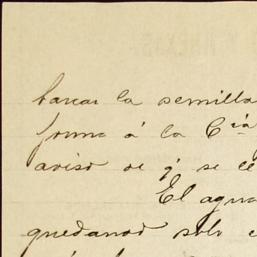 barcar la semilla
forma á la Cía
aviso de q se le
El agua
quedando solo